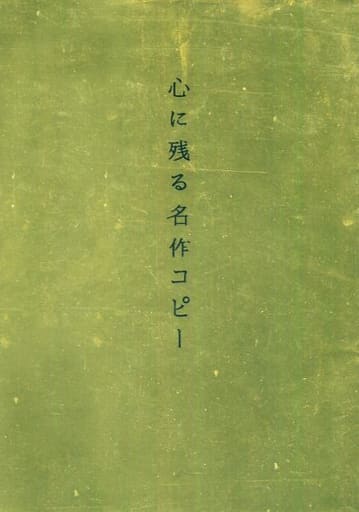 心に残る名作コピー